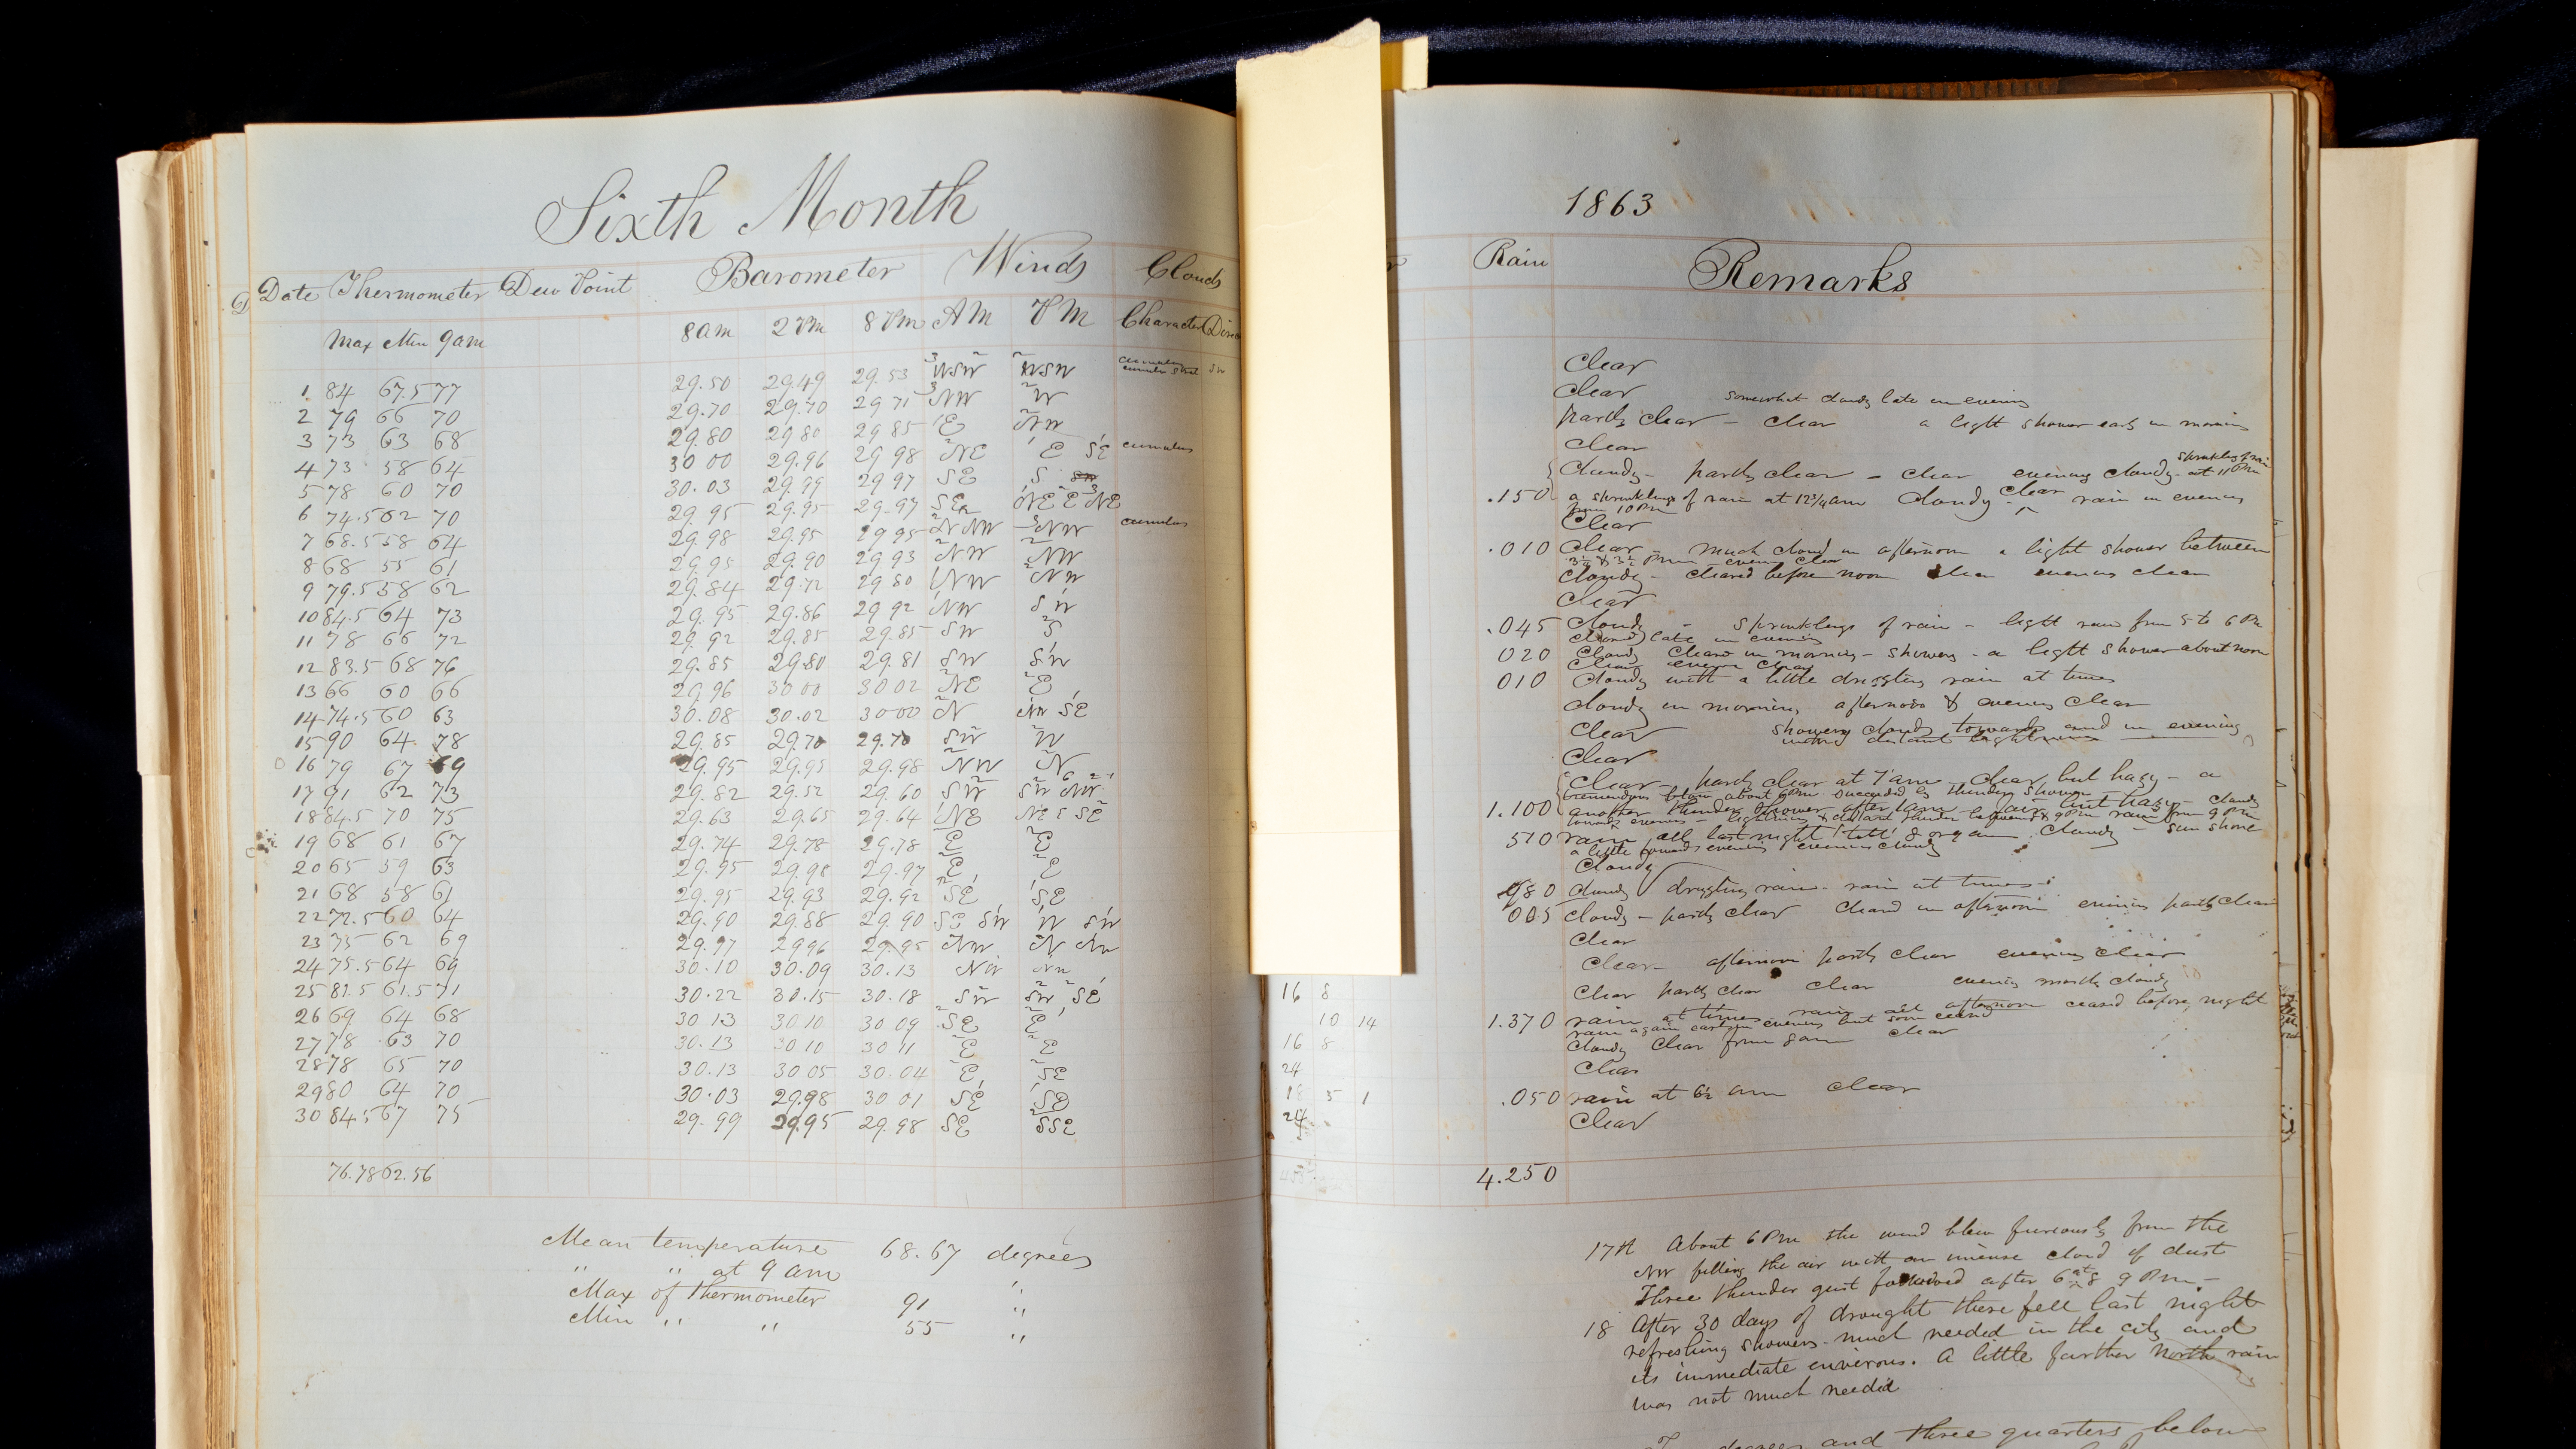 Sixth Month
Date Thermometer Dew Point Barometer Winds Clouds
Max Min 9am 8am 2 PM 8 PM AM PM Character
1 84 67.5 77 29.50 29.49 29.53 WSW WSW cumulus
2 79 66 70 29.70 29.70 29 71 NW W
3 73 63 68 29.80 29.80 29 85 E NW
4 73 58 64 30 00 29.96 29 98 NE E SE cumulus
5 78 60 70 30.03 29.99 29 97 SE S
6 74.5 62 70 29 95 29.95 29.97 SE NE E NE
7 68.5 58 64 29.98 29.95 29 95 NW cumulus
8 68 55 61 29.95 29.90 29.93 NW NW
9 79.5 58 62 29.84 29.72 29 80 NW NW
10 84.5 64 73 29.95 29.86 29 92 NW SW
11 78 66 72 29.92 29.85 29.85 SW S
12 83.5 68 76 29.85 29.80 29.81 SW SW
13 66 60 66 29.96 30 00 30 02 NE E
14 74.5 60 63 30.08 30.02 3000 N NW SE
15 90 64 78 29.85 29.70 29.70 SW W
16 79 67 69 29.95 29.95 29.98 NW N
17 91 62 73 29.82 29.52 29.60 SW SW NW
18 84.5 70 75 29.63 29.65 29.64 NE NE E SE
19 68 61 67 29.74 29.78 29.78 E E
20 65 59 63 29.95 29.98 29.97 E E
21 68 58 61 29.95 29.93 29.92 SE SE
22 72.5 60 64 29.90 29.88 29.90 SE SW W SW
23 75 62 69 29.97 2996 29.95 NW N NW
24 75.5 64 69 30.10 30.09 30.13 NW NW
25 81.5 61.5 71 30.22 30.15 30.18 SW SW SE
26 69 64 68 30 13 30 10 30 09 SE E
27 78 63 70 30.13 30 10 30 11 E E
28 78 65 70 30.13 30 05 30.04 E SE
29 80 64 70 30.03 29.98 30 01 SE SE
30 84.5 67 75 29.99 29.95 29.98 SE SSE
76.78 62.56
Mean temperature 68.67 degrees
" " at 9 am
Max of Thermometer 91 "
Min " " 55 "
1863
Rain Remarks
Clear
Clear somewhat cloudy late in evening
partly clear - clear a light shower early in morning
Clear
Cloudy - partly clear - clear evening cloudy sprinkling of rain at 11 PM
.150 a sprinkling of rain at 12 3/4 am cloudy clear rain in evening
from 10 PM
Clear
.010 Clear much cloud in afternoon a light shower between
evening clear
Cloudy - cleared before noon evening clear
Clear
.045 Cloudy - sprinklings of rain - light rain from 5 to 6 PM
late in evening
020 Cloudy in morning - showery - a light shower about noon
evening
010 Cloudy with a little drizzling rain at times
Cloudy in morning afternoon & evening clear
Clear showery clouds towards and in evening
distant lightning
Clear
Clear - partly clear at 7 am - clear but hazy - a
tremendous blow about 6 PM succeeded by thunder shower
1.100 another thunder shower after 1 am - but hazy - cloudy
towards evening - lightning & distant thunder rain from 9 PM
510 rain all last night till 8 or 9 am cloudy - sun shone
a little towards evening evening cloudy
Cloudy
080 Cloudy drizzling rain - rain at times
005 Cloudy - partly clear cleared in afternoon evening partly clear
Clear
Clear - afternoon partly clear evening clear
16 8 Clear partly clear clear evening mostly cloudy
10 14 1.370 rain at times rain all afternoon ceased before night
rain again early in evening but soon ceased
16 8 Cloudy clear from 8 am clear
24 Clear
18 5 1 .050 rain at 6½ am clear
24 Clear
4.250
17th About 6 PM the wind blew furiously from the
NW filling the air with an imense cloud of dust
Three thunder gust followed after 6 at 8 9 PM -
18 After 30 days of drought there fell last night
refreshing showers - much needed in the city and
its immediate environs. A little farther north rain
was not much needed
degrees and three quarters below